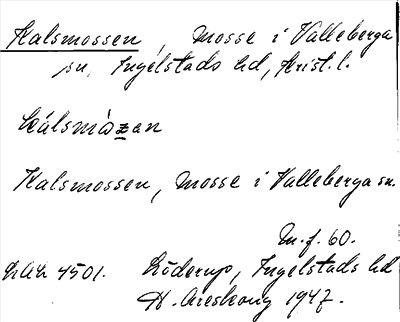 Kalsmossen, Mosse i Valleberga
sn, Ingelstads hd, Krist. l.
kálsmåzan
Kalsmossen, Mosse i Valleberga sn.
M. f. 60.
LAL 4501. Löderup, Ingelstads hd
H. Areskoug 1947.